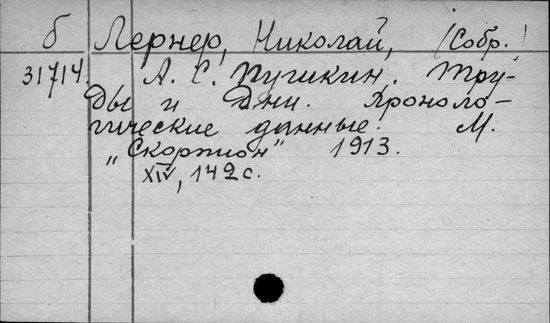 б Лернер, Николай, (Собр.)
31714. А. С. Пушкин. Тру-
ды и Дни. Хроноло-
гические данные. М.
„Скорпион" 1913.
XIV, 142 с.